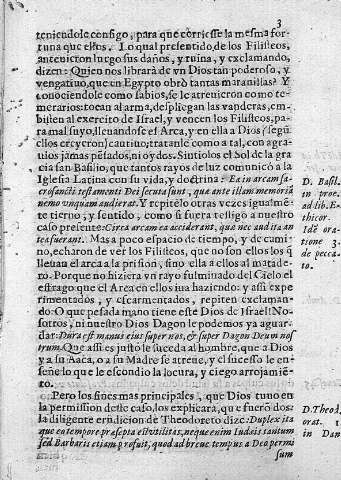 3
teniendole consigo, para que corriesse la mesma for-
tuna que ellos. Lo qual presentido, de los Filisteos,
antevieron luego sus daños, y ruina, y exclamando,
dizen: Quien nos librarà de vn Dios tan poderoso, y
vengatiuo, que en Egypto obrò tantas marauillas? Y
conociendole como sabios, se le atreuieron como te-
merarios: tocan al arma, despliegan las vanderas, em-
bisten al exercito de Israel, y vencen los Filisteos, pa-
ra mal suyo, lleuandose el Arca, y en ella a Dios (segũ
ellos creyeron) cautiuo; tratanle como a tal, con agra-
uios jamas pẽsados, ni oydos. Sintiolos el Sol de la gra-
cia san Basilio, que tantos rayos de luz comunicò a la
Iglesia Latina con su vida, y dotrina: Ea in arcam sa-
crosancti testamenti Dei secuta sunt, que ante illam memoriã
nemo vnquam audierat. Y repitelo otras vezes igualmẽ-
te tierno, y sentido, como si fuera testigo a nuestro
caso presente: Circa arcam ea acciderant, quæ nec audita an
tea fuerant. Mas a poco espacio de tiempo, y de cami-
no, echaron de ver los Filisteos, que no son ellos los q̃
lleuan el arca a la prision, sino ella a ellos al matade-
ro. Porque no hiziera vn rayo fulminado del Cielo el
estrago que el Arca en ellos iua haziendo: y assi expe-
rimentados, y escarmentados, repiten exclaman-
do: O que pesada mano tiene este Dios de Israel! No-
sotros, ni nuestro Dios Dagon le podemos ya aguar-
dar: Dura est manus eius super nos, & super Dagon Deum nos
trum. Que assi es justo le suceda al hombre, que a Dios
y a su Arca, o a su Madre se atreue, y el sucesso le en-
señe lo que le escondio la locura, y ciego arrojamiẽ-
to.
Pero los fines mas principales, que Dios tuuo en
la permission deste caso, los explicarà, que fuerõ dos:
la diligente erudicion de Theodoreto dize: Duplex ita
que eo tempore præsepta est vtilitas, neque enim Iudæis tantum
sed Barbaris etiam profuit, quod ad breue tempus a Deo permi
sum
D. Basil.
in proe.
ad lib. E-
thicor.
Idẽ orat
tione 3.
de pecca-
to.
D. Theod,
orat. 1
in Dan